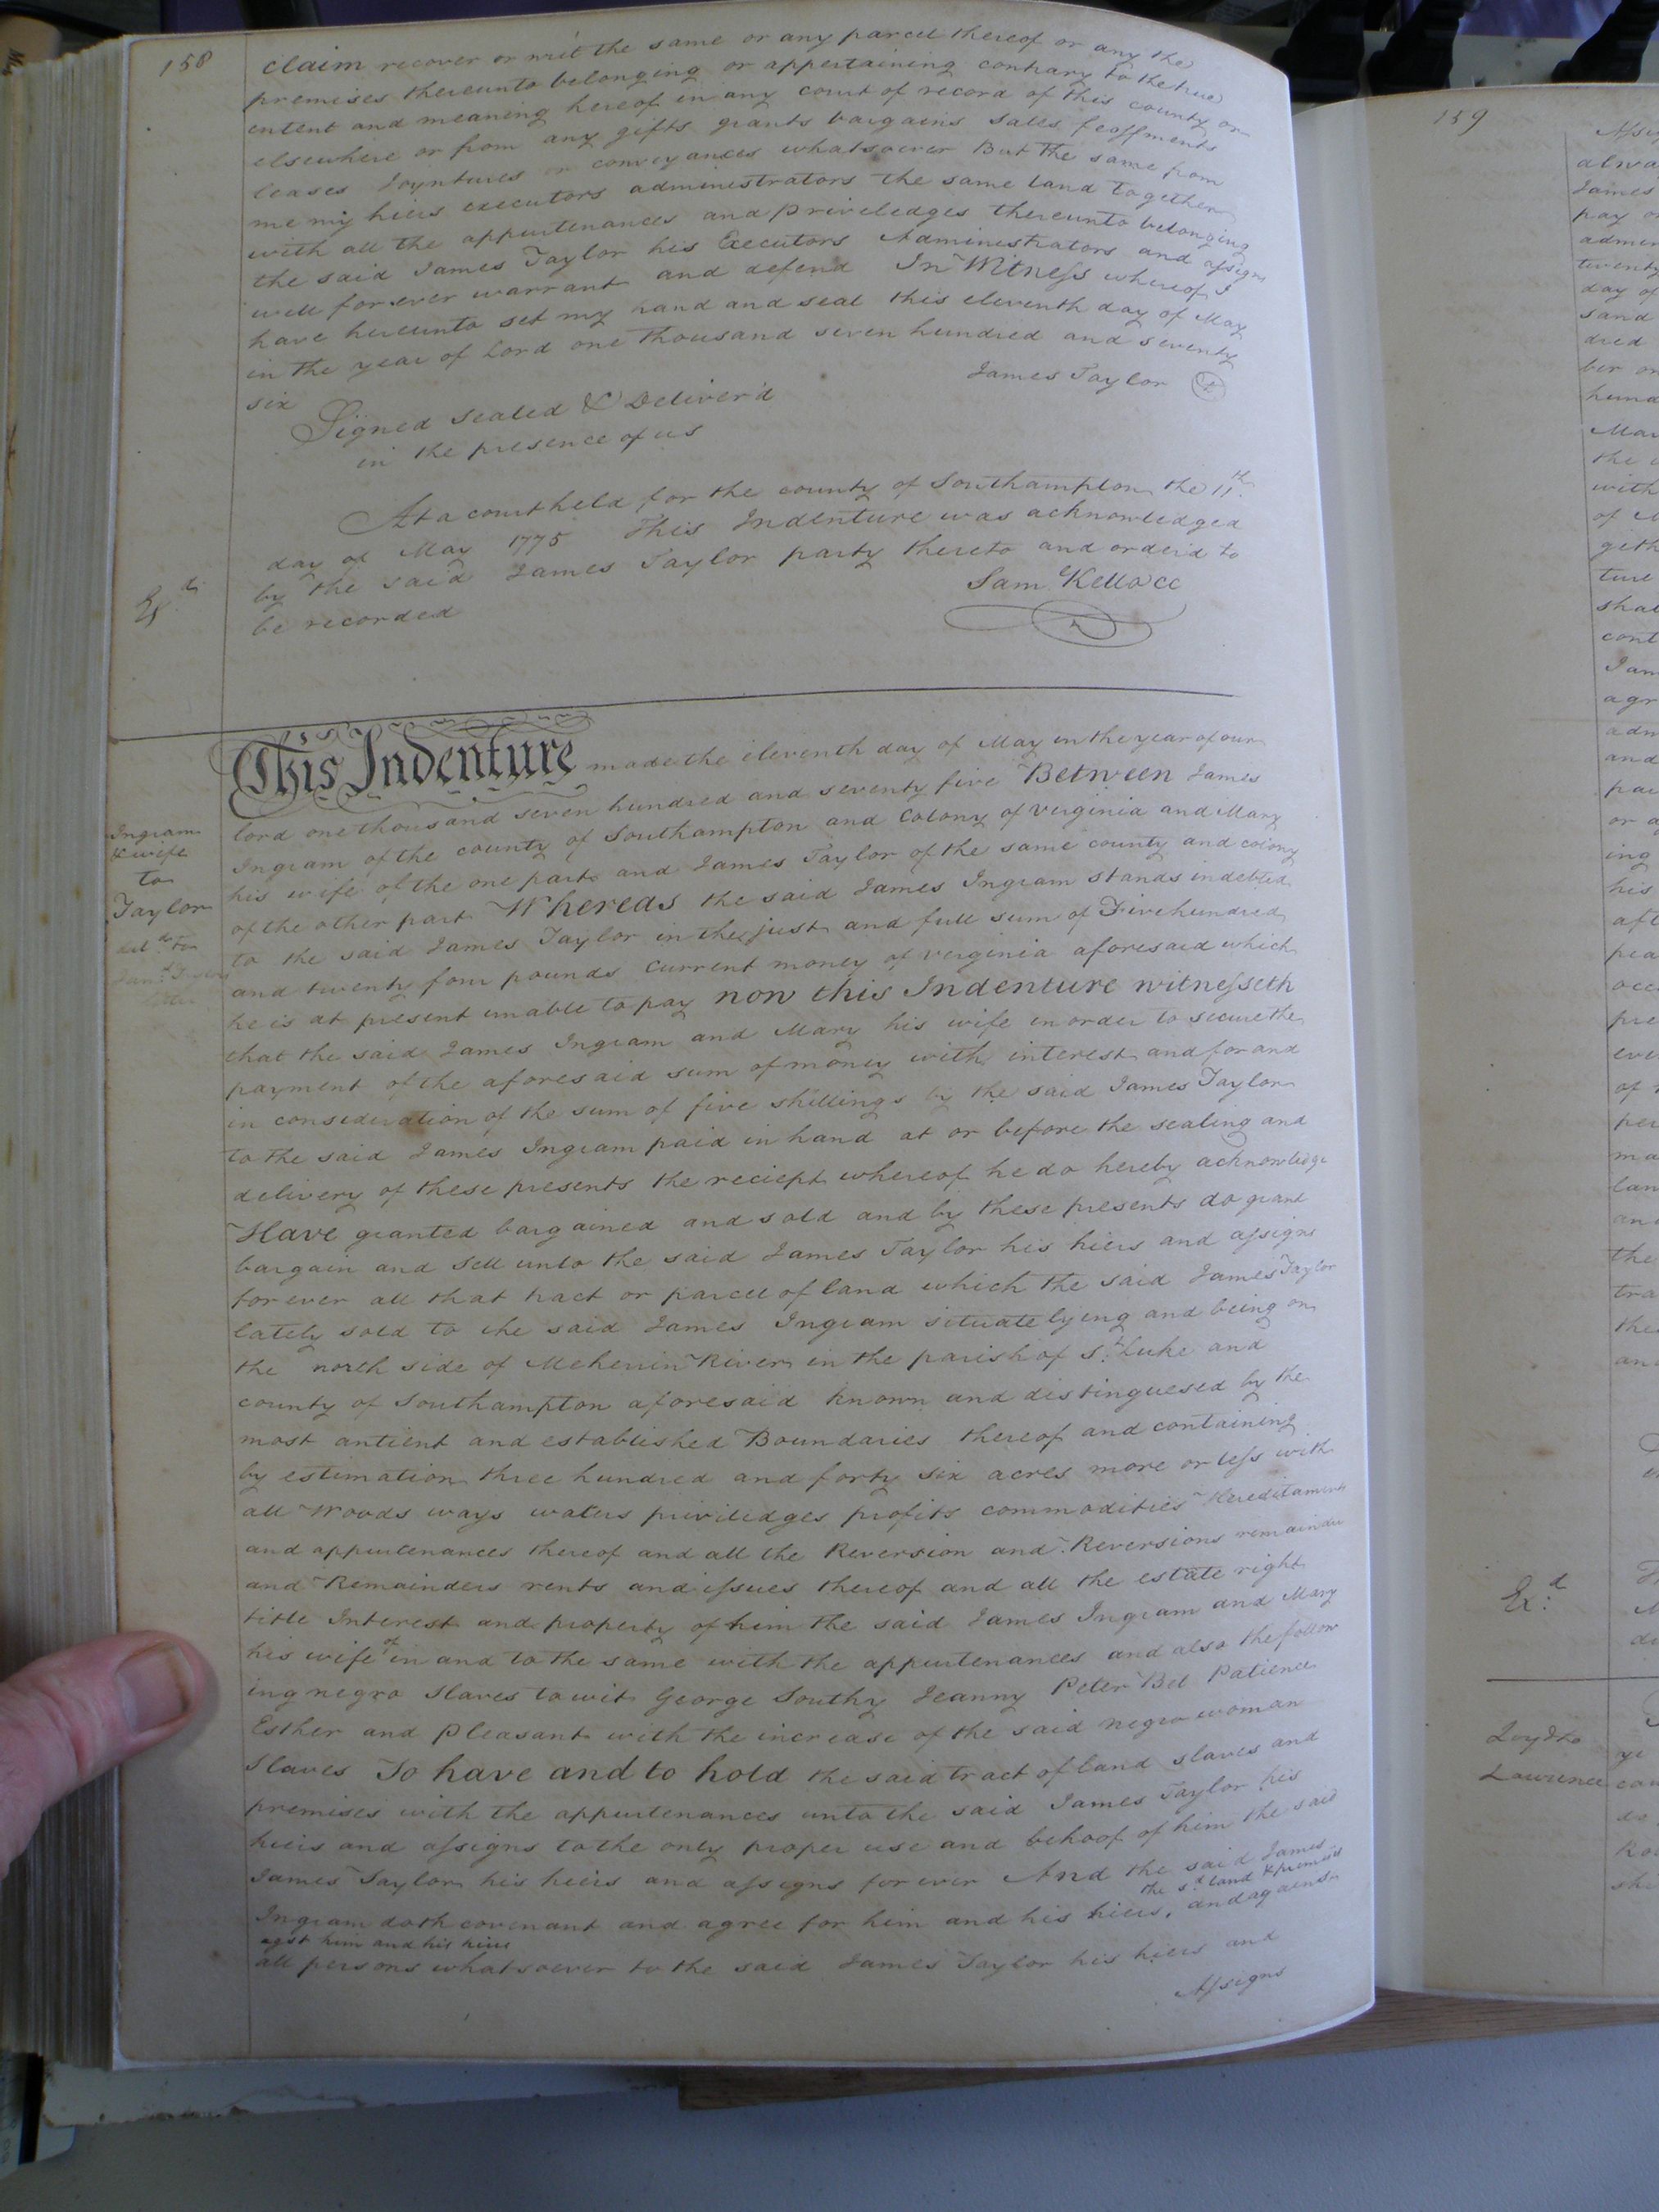 158
claim recover or the same or any parcel thereof or any the
premises thereunto belonging or appertaining contrary to the true
intent and meaning hereof in any court of record of this county or
elsewhere or from any gifts grants bargains sales feoffments
leases Joyntures or conveyances whatsoever But the same from
me my hiers executors administrators the same land together
with all the appurtenances and priveledges thereunto belonging
the said James Taylor his Executors Administrators and assigns
will forever warrant and defend In Witness whereof I
have hereunto set my hand and seal this eleventh day of May
in the year of Lord one thousand seven hundred and seventy
six
James Taylor
Signed Sealed & Deliver'd
in the presence of us
At a court held for the county of Southampton the 11th
day of May 1775 This Indenture was acknowledged
by the said James Taylor party thereto and order'd to
be recorded
Sam Kello CC
Ex.d
This Indenture made the eleventh day of May in the year of our
lord one thousand seven hundred and seventy five Between James
Ingram of the county of Southampton and Colony of Virginia and Mary
his wife of the one part and James Taylor of the same county and colony
of the other part Whereas the said James Ingram stands indebted
to the said James Taylor in the just and full sum of Five hundred
and twenty four pounds Current money of Virginia aforesaid which
he is at present unable to pay now this Indenture witnesseth
that the said James Ingram and Mary his wife in order to secure the
payment of the aforesaid sum of money with interest and for and
in consideration of the sum of five shillings by the said James Taylor
to the said James Ingram paid in hand at or before the sealing and
delivery of these presents the reciept whereof he do hereby acknowledge
Have granted bargained and sold and by these presents do grant
bargain and Sell unto the said James Taylor his hiers and assigns
for ever all that tract or parcel of land which the said James Taylor
lately sold to the said James Ingram situate lying and being on
the north side of Meherrin River in the parish of St. Luke and
county of Southampton aforesaid known and distinguesed by the
most antient and established Boundaries thereof and containing
by estimation three hundred and forty six acres more or less with
all Woods ways waters priviledges profits commodities Hereditaments
and appurtenances thereof and all the Reversion and Reversions remainder
and Remainders rents and issues thereof and all the estate right
title Interest and property of him the said James Ingram and Mary
his wife of in and to the same with the appurtenances and also the follow
ing negro Slaves to wit George Southy Jeanny Peter Bet Patience
Esther and Pleasant with the increase of the said negro woman
Slaves To have and to hold the said tract of land slaves and
premises with the appurtenances unto the said James Taylor his
hiers and assigns to the only proper use and behoof of him the said
James Taylor his hiers and assigns for ever And the said James
the sd. land & premises
Ingram doth covenant and agree for him and his hiers, and against
agst him and his hiers
all persons whatsoever to the said James Taylor his hiers and
Assigns
Ingram
& wife
to
Taylor
159
alwa
James
pay
twenty
day of
sand
dred
ber
hund
the
with
of
geth
ture
shal
cont
Jam
agr
adm
and
par
or
ing
his
aft
occ
pre
eve
of
per
ma
lan
and
the
tra
the
an
Ex.d
Lawrence